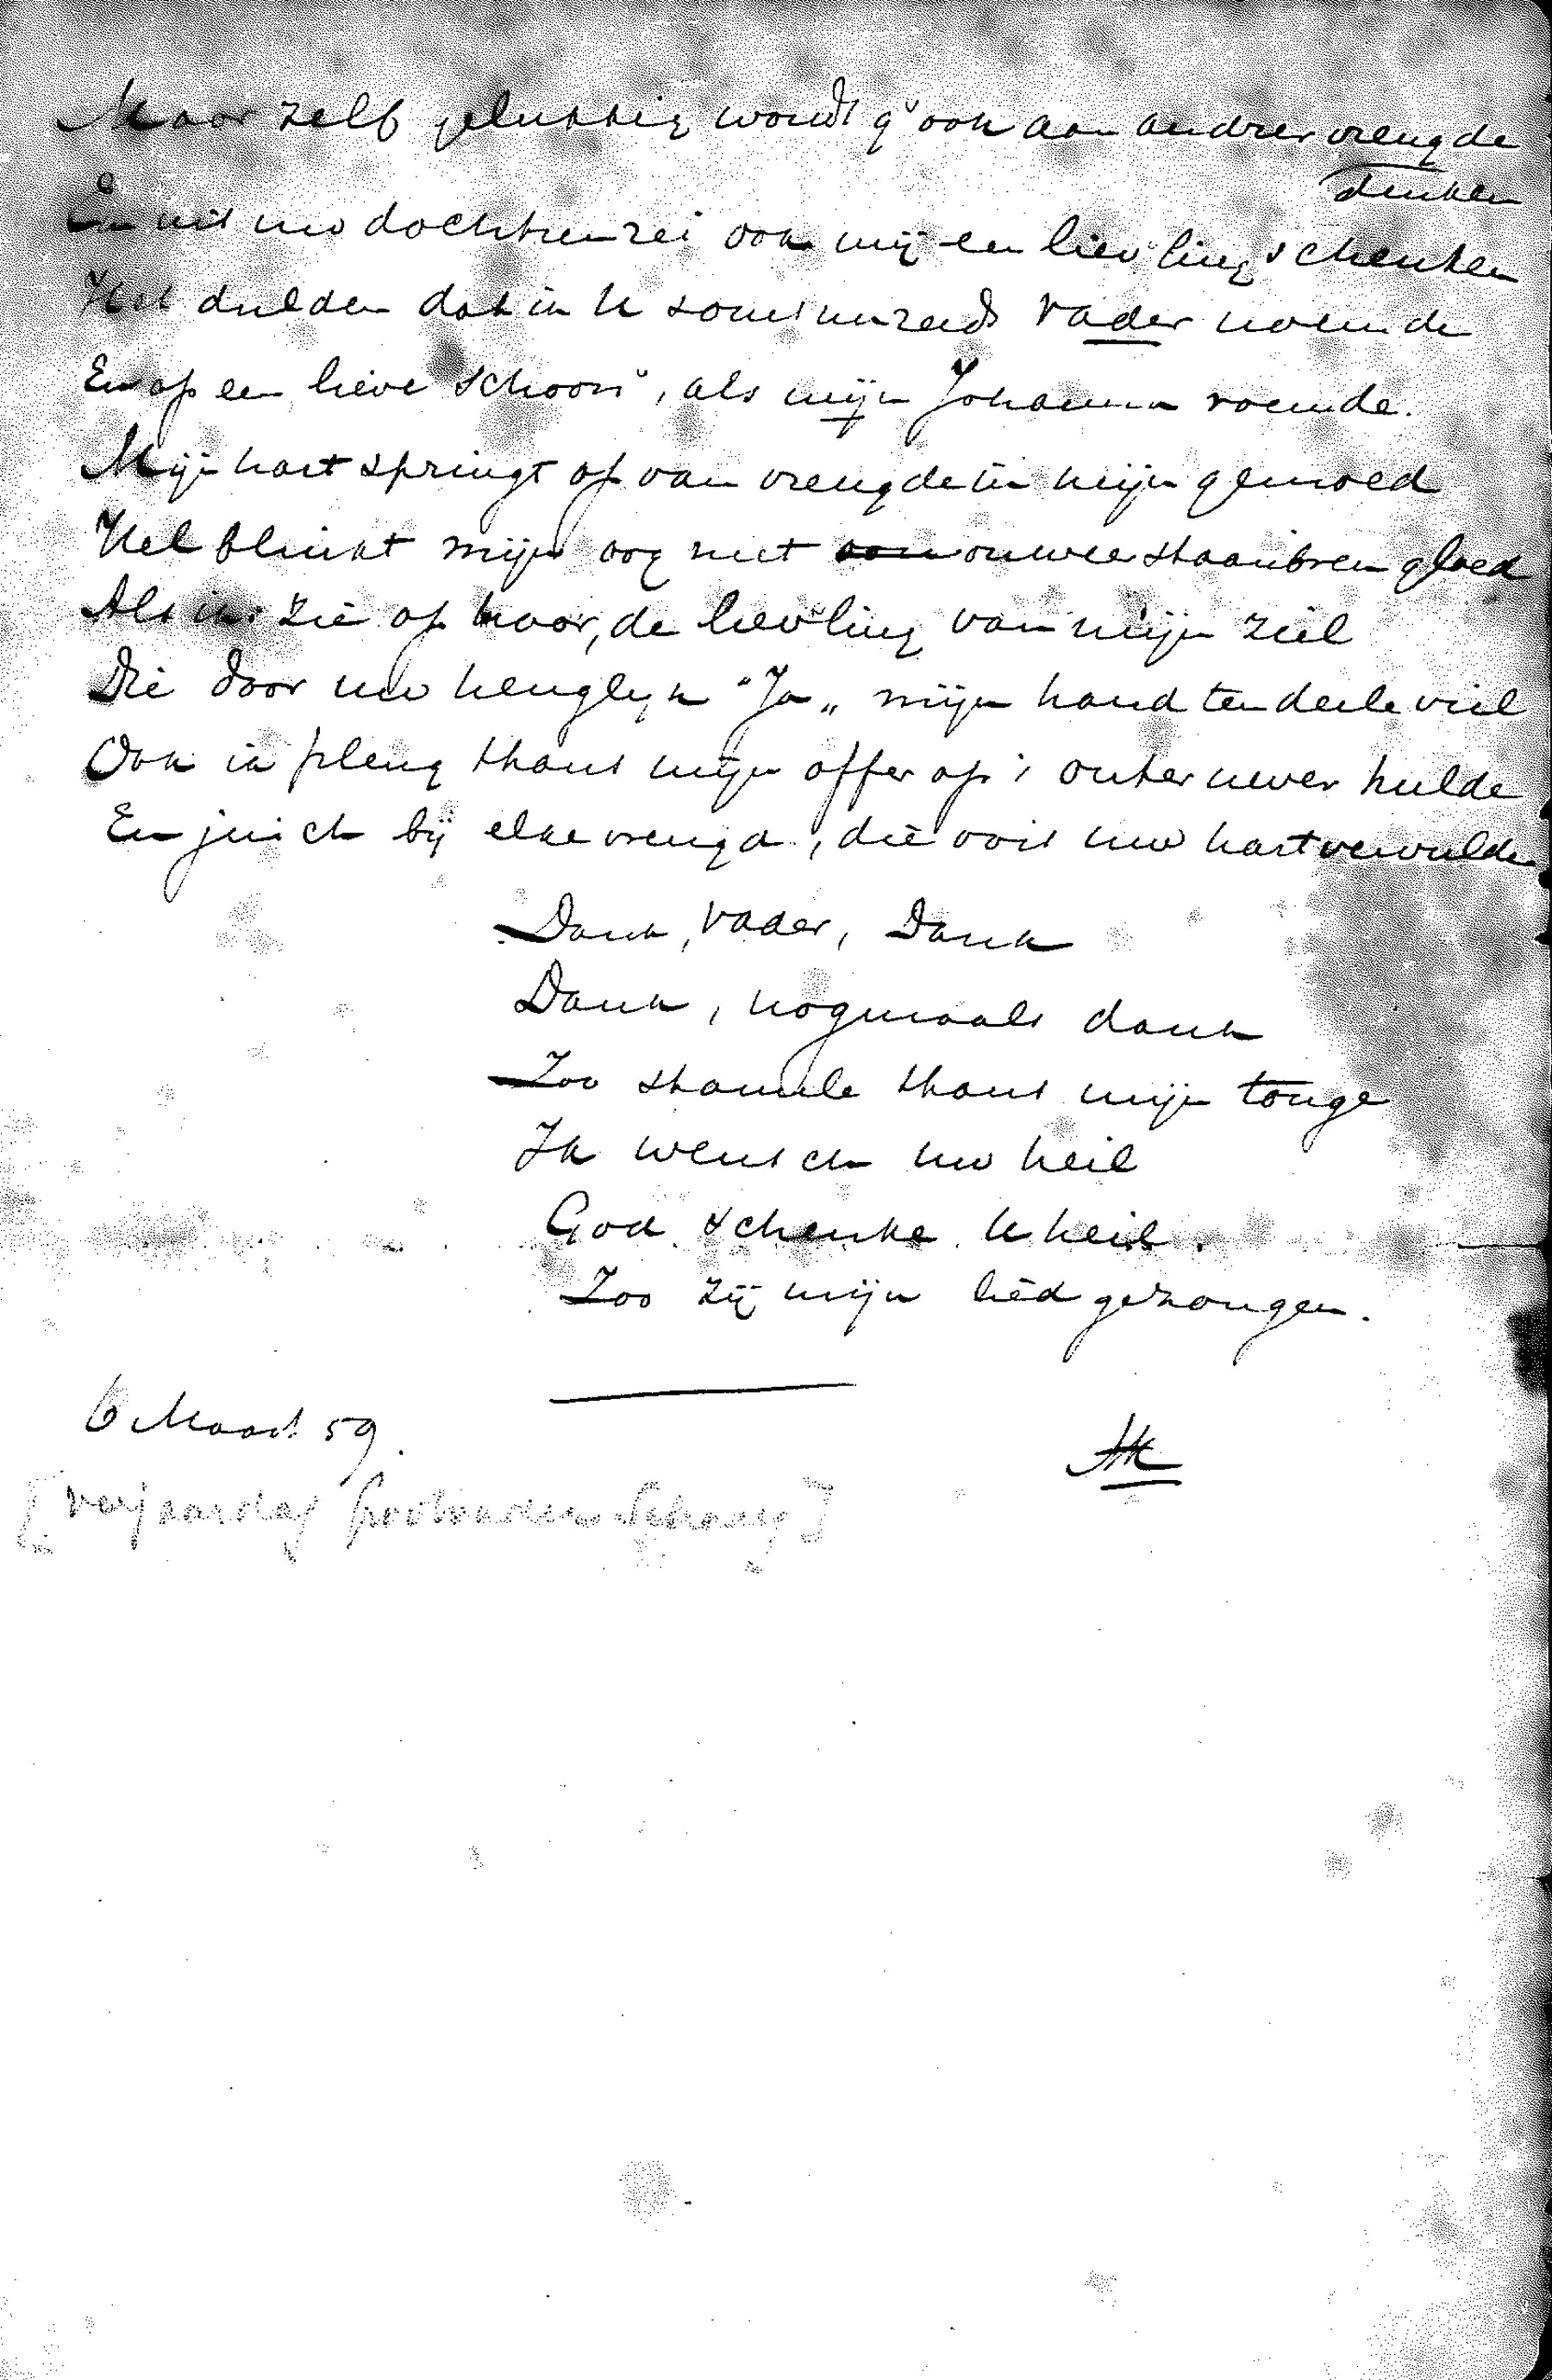 Maar zelf gelukkig woudt g' ook aan andrer vreugde
denken
En uit uw dochtrenrei ook mij een liev'ling schenken
Het dulden dat ik U soms reeds Vader noemde
En op een lieve "schoone", als mijn Johanna roemde.
Mijn hart springt op van vreugde in mijn gemoed
Hel blinkt mijn oog met onweerstaanbren gloed
Als ik zie op haar, de liev'ling van mijn ziel
Die door uw heuglijk "Ja" mijn hand ten deele viel
Ook ik pleng thans mijn offer op 't outer uwer hulde
En juich bij elke vreugd, die ooit uw hart vervulde
Dank, Vader, Dank
Dank, nogmaals dank
Zoo stamele thans mijn tonge
Ik wensch uw heil
God schenke U heil.
Zoo zij mijn lied gezongen.
6 Maart 59.
AK
[verjaardag Grootvader Schaay]